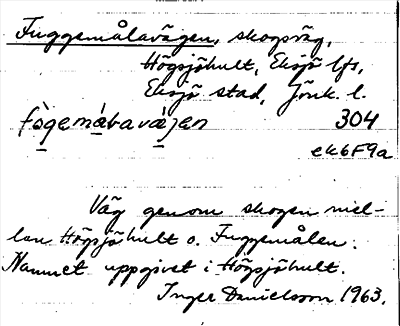 Fuggemålavägen, skogsväg,
Högsjöhult, Eksjö lfs,
Eksjö stad, Jönk. l.
fògemàbavàjen 304
ek6F9a
Väg genom skogen mel-
lan Högsjöhult o. Fuggemålen.
Namnet uppgivet i Högsjöhult.
Inger Danielsson 1963.